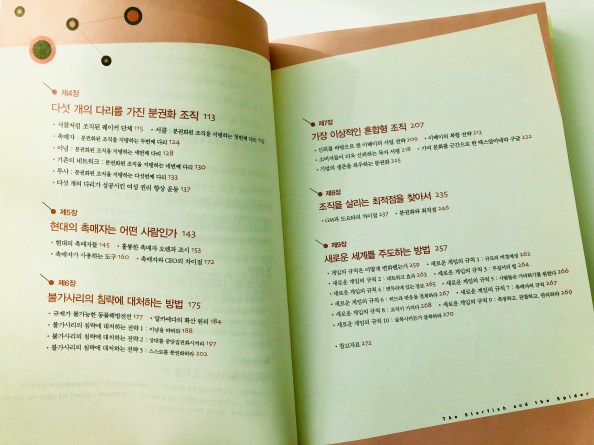 제4장
다섯 개의 다리를 가진 분권화 조직 113
• 서클처럼 조직된 퀘이커 단체 115 • 서클 : 분권화된 조직을 지탱하는 첫번째 다리 119
• 촉매자 : 분권화된 조직을 지탱하는 두번째 다리 124
• 이념 : 분권화된 조직을 지탱하는 세번째 다리 128
• 기존의 네트워크 : 분권화된 조직을 지탱하는 네번째 다리 130
• 투사 : 분권화된 조직을 지탱하는 다섯번째 다리 133
• 다섯 개의 다리가 성공시킨 여성 권리 향상 운동 137
제5장
현대의 촉매자는 어떤 사람인가 143
• 현대의 촉매자들 145 • 훌륭한 촉매자 오렌과 조시 153
• 촉매자가 사용하는 도구 160 • 촉매자와 CEO의 차이점 172
제6장
불가사리의 침략에 대처하는 방법 175
• 규제가 불가능한 동물해방전선 177 • 알카에다의 확산 원리 184
• 불가사리의 침략에 대처하는 전략 1 : 이념을 바꿔라 188
• 불가사리의 침략에 대처하는 전략 2 : 상대를 중앙집권화시켜라 197
• 불가사리의 침략에 대처하는 전략 3 : 스스로를 분권화하라 202
제7장
가장 이상적인 혼합형 조직 207
• 신뢰를 바탕으로 한 이베이의 사업 전략 209 • 이베이의 복합 전략 213
• 소비자들이 더욱 신뢰하는 독자 서평 218 • 가의 문화를 근간으로 한 덱스암마네와 구글 222
• 기업의 생존을 좌우하는 분권화 225
제8장
조직을 살리는 최적점을 찾아서 235
• GM과 도요타의 차이점 237 • 분권화와 최적점 246
제9장
새로운 세계를 주도하는 방법 257
• 게임의 규칙은 어떻게 변화했는가 259 • 새로운 게임의 규칙 1 : 규모의 비경제성 262
• 새로운 게임의 규칙 2 : 네트워크 효과 263 • 새로운 게임의 규칙 3 : 무질서의 힘 264
• 새로운 게임의 규칙 4 : 변두리에 있는 정보 265 • 새로운 게임의 규칙 5 : 사람들은 기여하기를 원한다 266
• 새로운 게임의 규칙 6 : 히드라 반응을 경계하라 267 • 새로운 게임의 규칙 7 : 촉매자의 규칙 267
• 새로운 게임의 규칙 8 : 조직이 가치다 268 • 새로운 게임의 규칙 9 : 측정하고, 관찰하고, 관리하라 269
• 새로운 게임의 규칙 10 : 분권화
• 참고자료 272
The Starfish and the Spider